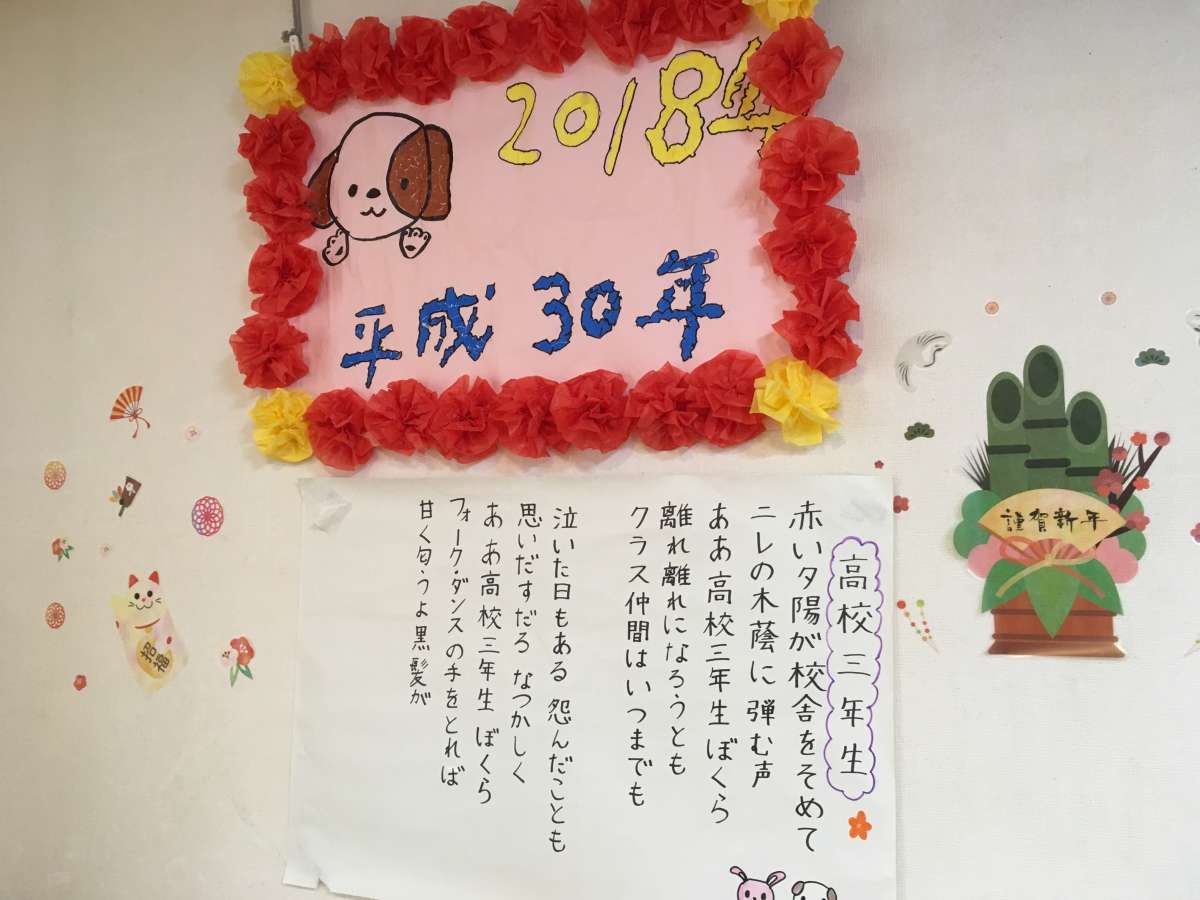 2018年
平成30年
高校三年生
赤い夕陽が校舎をそめて
ニレの木蔭に弾む声
ああ高校三年生ぼくら
離れ離れになろうとも
クラス仲間はいつまでも
泣いた日もある 怨んだことも
思いだすだろ なつかしく
ああ高校三年生 ぼくら
フォーク・ダンスの手をとれば
甘く匂うよ黒髪が
謹賀新年
招福